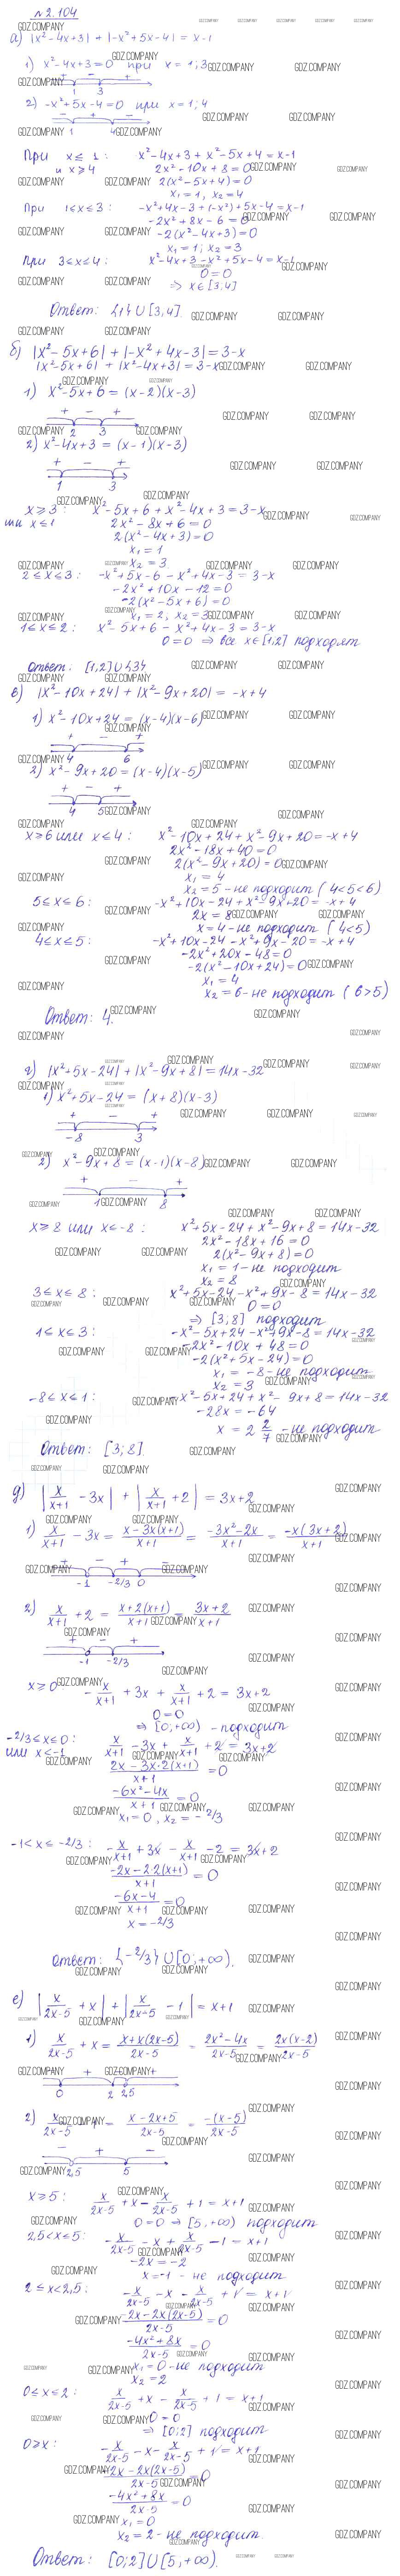 №2.104
а) |x²-4x+3| + |-x²+5x-4| = x-1
1) x²-4x+3=0 при x=1;3
+ - +
1 3
2) -x²+5x-4=0 при x=1;4
- + -
1 4
При x≤1: x²-4x+3+x²-5x+4=x-1
и x≥4 2x²-10x+8=0
2(x²-5x+4)=0
x₁=1, x₂=4
при 1≤x≤3: -x²+4x-3+(-x²)+5x-4=x-1
-2x²+8x-6=0
-2(x²-4x+3)=0
x₁=1; x₂=3
при 3≤x≤4: x²-4x+3-x²+5x-4=x-1
0=0
⇒ x∈[3;4]
Ответ: {1}∪[3,4].
б) |x²-5x+6| + |-x²+4x-3| = 3-x
|x²-5x+6| + |x²-4x+3| = 3-x
1) x²-5x+6 = (x-2)(x-3)
+ - +
2 3
2) x²-4x+3 = (x-1)(x-3)
+ - +
1 3
x≥3: x²-5x+6+x²-4x+3=3-x
или x≤1 2x²-8x+6=0
2(x²-4x+3)=0
x₁=1
x₂=3
2≤x≤3: -x²+5x-6-x²+4x-3=3-x
-2x²+10x-12=0
-2(x²-5x+6)=0
x₁=2, x₂=3
1≤x≤2: x²-5x+6-x²+4x-3=3-x
0=0 ⇒ все x∈[1,2] подходят
Ответ: [1,2]∪{3}
в) |x²-10x+24| + |x²-9x+20| = -x+4
1) x²-10x+24=(x-4)(x-6)
+ - +
4 6
2) x²-9x+20=(x-4)(x-5)
+ - +
4 5
x≥6 или x≤4: x²-10x+24+x²-9x+20=-x+4
2x²-18x+40=0
2(x²-9x+20)=0
x₁=4
x₂=5-не подходит (4<5<6)
5≤x≤6: -x²+10x-24+x²-9x+20=-x+4
2x=8
x=4-не подходит (4<5)
4≤x≤5: -x²+10x-24-x²+9x-20=-x+4
-2x²+20x-48=0
-2(x²-10x+24)=0
x₁=4
x₂=6-не подходит (6>5)
Ответ: 4.
г) |x²+5x-24| + |x²-9x+8| = 14x-32
1) x²+5x-24 = (x+8)(x-3)
+ - +
-8 3
2) x²-9x+8=(x-1)(x-8)
+ - +
1 8
x≥8 или x≤-8: x²+5x-24+x²-9x+8=14x-32
2x²-18x+16=0
2(x²-9x+8)=0
x₁=1-не подходит
x₂=8
3≤x≤8: x²+5x-24-x²+9x-8=14x-32
0=0
⇒ [3;8] подходит
1≤x≤3: -x²-5x+24-x²+9x-8=14x-32
-2x²-10x+48=0
-2(x²+5x-24)=0
x₁=-8-не подходит
x₂=3
-8≤x≤1: -x²-5x+24+x²-9x+8=14x-32
-28x=-64
x=2 2/7 -не подходит
Ответ: [3;8].
д) |x/(x+1) - 3x| + |x/(x+1) + 2| = 3x+2
1) x/(x+1) - 3x = (x-3x(x+1))/(x+1) = (-3x²-2x)/(x+1) = (-x(3x+2))/(x+1)
+ - + -
-1 -2/3 0
2) x/(x+1) + 2 = (x+2(x+1))/(x+1) = (3x+2)/(x+1)
+ - +
-1 -2/3
x≥0 -x/(x+1) + 3x + x/(x+1) + 2 = 3x+2
0=0
⇒ [0;+∞) - подходит
-2/3≤x≤0: x/(x+1) - 3x + x/(x+1) + 2 = 3x+2
или x<-1 (2x-3x·2(x+1))/(x+1) = 0
(-6x²-4x)/(x+1) = 0
x₁=0, x₂=-2/3
-1<x≤-2/3: -x/(x+1) + 3x - x/(x+1) - 2 = 3x+2
(-2x-2·2(x+1))/(x+1) = 0
(-6x-4)/(x+1) = 0
x=-2/3
Ответ: {-2/3}∪[0;+∞).
е) |x/(2x-5) + x| + |x/(2x-5) - 1| = x+1
1) x/(2x-5) + x = (x+x(2x-5))/(2x-5) = (2x²-4x)/(2x-5) = (2x(x-2))/(2x-5)
- + - +
0 2 2,5
2) x/(2x-5) - 1 = (x-2x+5)/(2x-5) = (-(x-5))/(2x-5)
- + -
2,5 5
x≥5: x/(2x-5) + x - x/(2x-5) + 1 = x+1
0=0 ⇒ [5;+∞) подходит
2,5<x≤5: -x/(2x-5) - x + x/(2x-5) - 1 = x+1
-2x=-2
x=-1 - не подходит
2≤x<2,5: -x/(2x-5) - x - x/(2x-5) + 1 = x+1
(-2x-2x(2x-5))/(2x-5) = 0
(-4x²+8x)/(2x-5) = 0
x₁=0-не подходит
x₂=2
0≤x≤2: x/(2x-5) + x - x/(2x-5) + 1 = x+1
0=0
⇒ [0;2] подходит
0≥x: -x/(2x-5) - x - x/(2x-5) + 1 = x+1
(-2x-2x(2x-5))/(2x-5) = 0
(-4x²+8x)/(2x-5) = 0
x₁=0
x₂=2-не подходит.
Ответ: [0;2]∪[5,+∞).